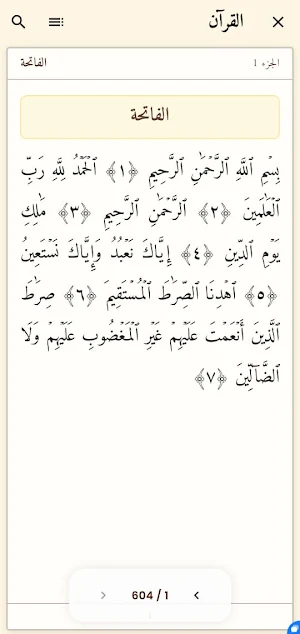 القرآن
الجزء 1
الفاتحة
الفاتحة
بِسْمِ ٱللَّهِ ٱلرَّحْمَٰنِ ٱلرَّحِيمِ ﴿١﴾ ٱلْحَمْدُ لِلَّهِ رَبِّ
ٱلْعَٰلَمِينَ ﴿٢﴾ ٱلرَّحْمَٰنِ ٱلرَّحِيمِ ﴿٣﴾ مَٰلِكِ
يَوْمِ ٱلدِّينِ ﴿٤﴾ إِيَّاكَ نَعْبُدُ وَإِيَّاكَ نَسْتَعِينُ
﴿٥﴾ ٱهْدِنَا ٱلصِّرَٰطَ ٱلْمُسْتَقِيمَ ﴿٦﴾ صِرَٰطَ
ٱلَّذِينَ أَنْعَمْتَ عَلَيْهِمْ غَيْرِ ٱلْمَغْضُوبِ عَلَيْهِمْ وَلَا
ٱلضَّآلِّينَ ﴿٧﴾
604 / 1